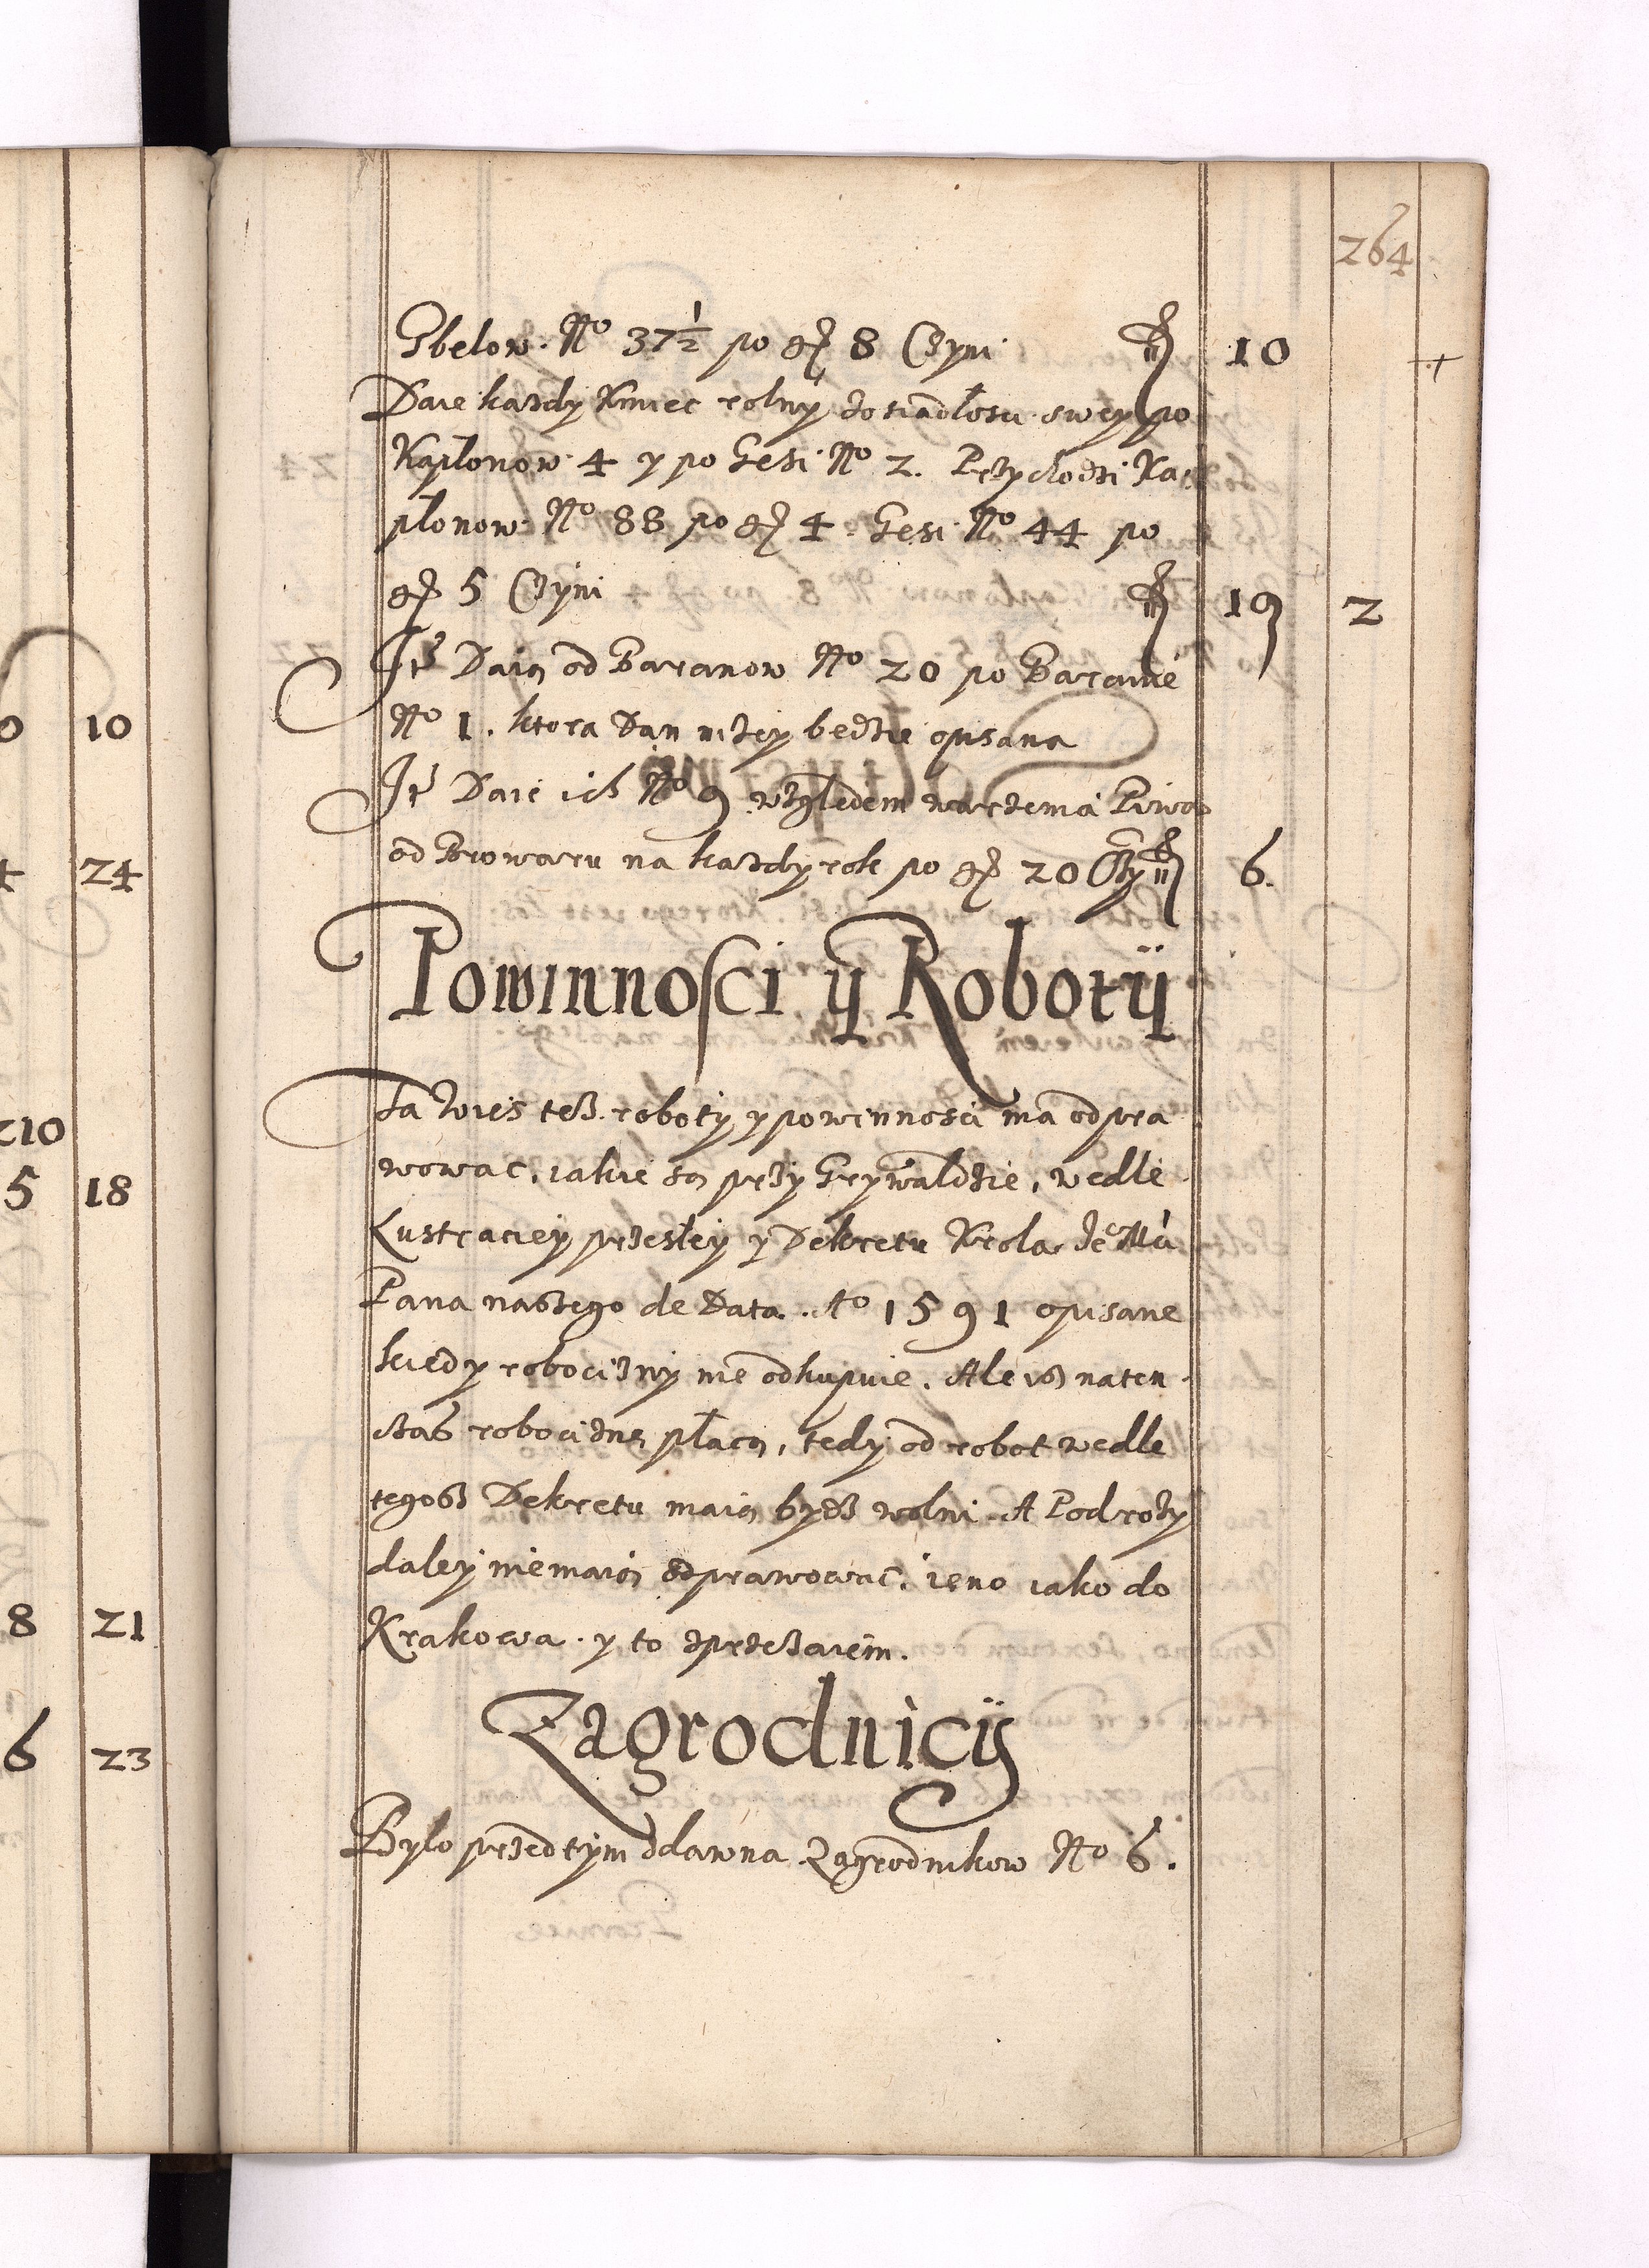 264
Gbelow. No 37 1/2 po gr 8 Czyni fl 10
Daie każdy Kmiec rolny zosiadłosci swey po
Kapłonow 4 y po Gesi No 2. Przychodzi Ka
płonow No 88 po gr 4 Gesi No 44 po
gr 5 Czyni fl 19 2
It Daią od Baranow No 20 po Baranie
No 1. ktora Dan niżey bedzie opisana
It Daie ich No 9 względem warzenia Piwa
od Browaru na każdy rok po gr 20 Czy fl 6.
Powinnosci ÿ Robotÿ
Ta Wies też roboty y powinnosci ma odpra
wowac, iakie są przy Grywałdzie, wedle
Lustraciey przesłey y Dekretu Krola Je Mci
Pana naszego de Data Ao 1591 opisane
kiedy robocizny nie odkupuie. Ale iż naten
czas robociznę płacą, tedy od robot wedle
tegoż Dekretu maią bydz wolni. A Podroży
daley niemaią odprawowac, ieno iako do
Krakowa y to zprzezaiem.
Zagrodnicÿ
Bylo przedtym zdawna Zagrodnikow No 6.
0 10
4 24
210
5 18
8 21
6 23